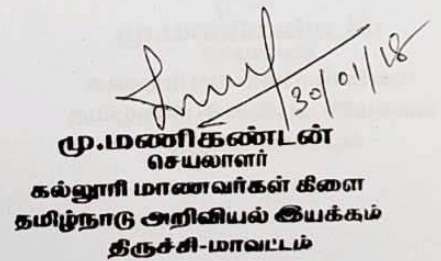 30/01/18
மு.மணிகண்டன்
செயலாளர்
கல்லூரி மாணவர்கள் கிளை
தமிழ்நாடு அறிவியல் இயக்கம்
திருச்சி-மாவட்டம்